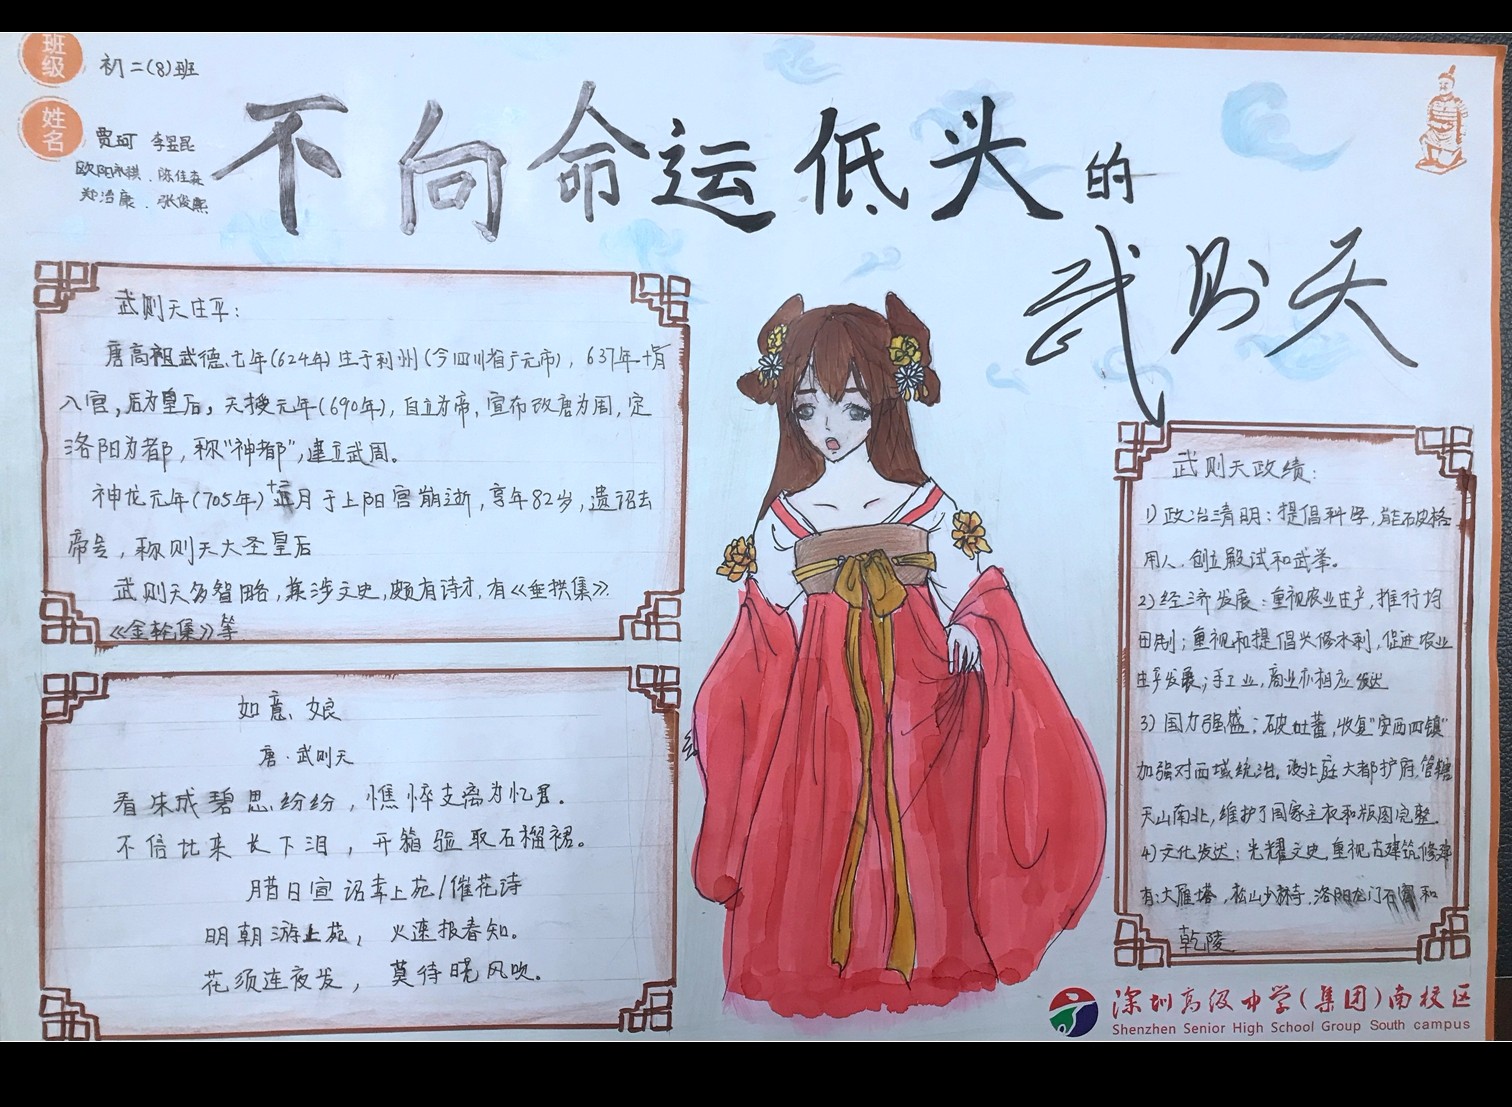 班级 初二(8)班
姓名 贾珂 李昱昆
欧阳永祺、陈佳森
郑浩康、张俊熙
不向命运低头的
武则天
武则天生平：
唐高祖武德七年(624年)生于利州(今四川省广元市)，637年十一月
入宫，后为皇后，天授元年(690年)，自立为帝，宣布改唐为周，定
洛阳为都，称“神都”，建立武周。
神龙元年(705年)十二月于上阳宫崩逝，享年82岁，遗诏去
帝号，称则天大圣皇后
武则天多智略，兼涉文史，颇有诗才，有《垂拱集》
《金轮集》等
如意娘
唐·武则天
看朱成碧思纷纷，憔悴支离为忆君。
不信比来长下泪，开箱验取石榴裙。
腊日宣诏幸上苑/催花诗
明朝游上苑，火速报春知。
花须连夜发，莫待晓风吹。
武则天政绩：
1)政治清明：提倡科学，能破格
用人，创立殿试和武举。
2)经济发展：重视农业生产，推行均
田制；重视和提倡兴修水利，促进农业
生产发展；手工业，商业亦相应发达
3)国力强盛：破吐蕃，收复“安西四镇”
加强对西域统治。设北庭大都护府，管辖
天山南北，维护了国家主夜和版图完整。
4)文化发达：光耀文史，重视古建筑修建
有：大雁塔，松山少林寺，洛阳龙门石窟和
乾陵
深圳高级中学(集团)南校区
Shenzhen Senior High School Group South campus